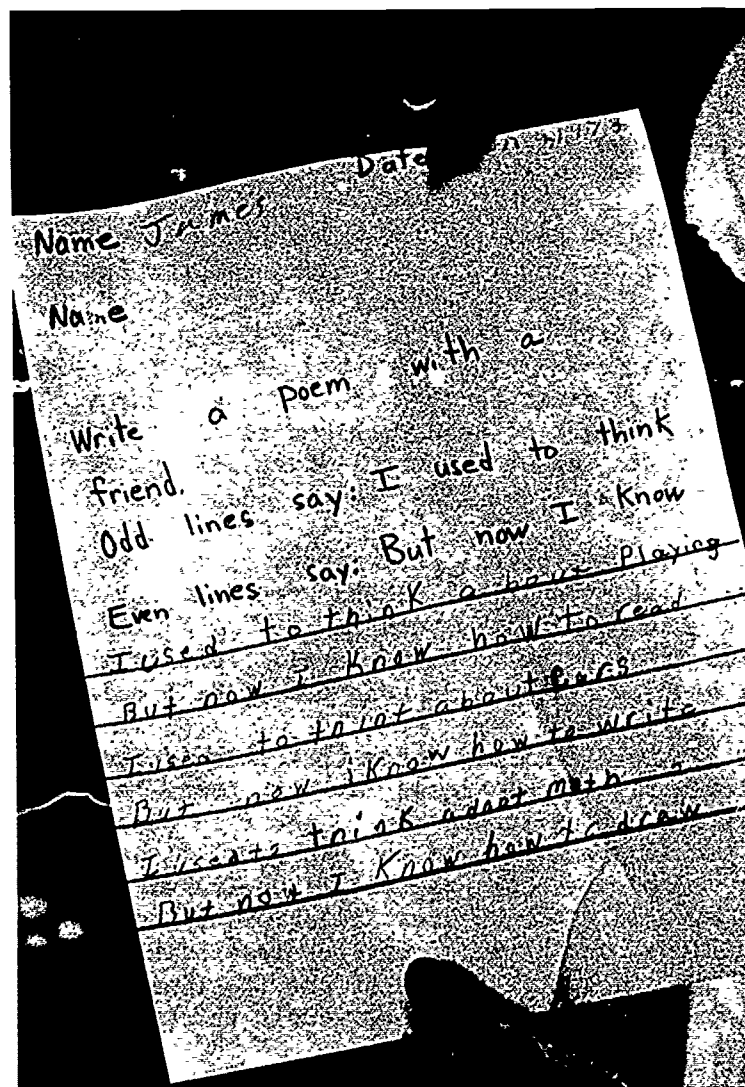 Date
Name James
Name
Write a poem with a
friend.
Odd lines say: I used to think
Even lines say: But now I know
I used to think about Playing
But now I know how to read
I used to think about cars
But now I know how to write
I used to think adout math
But now I know how to draw